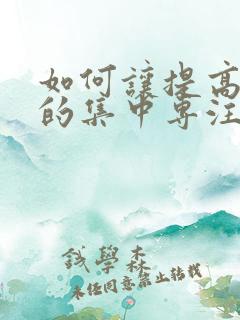 如何讓提高
的集中專注
錢學森
未经同意禁止转载